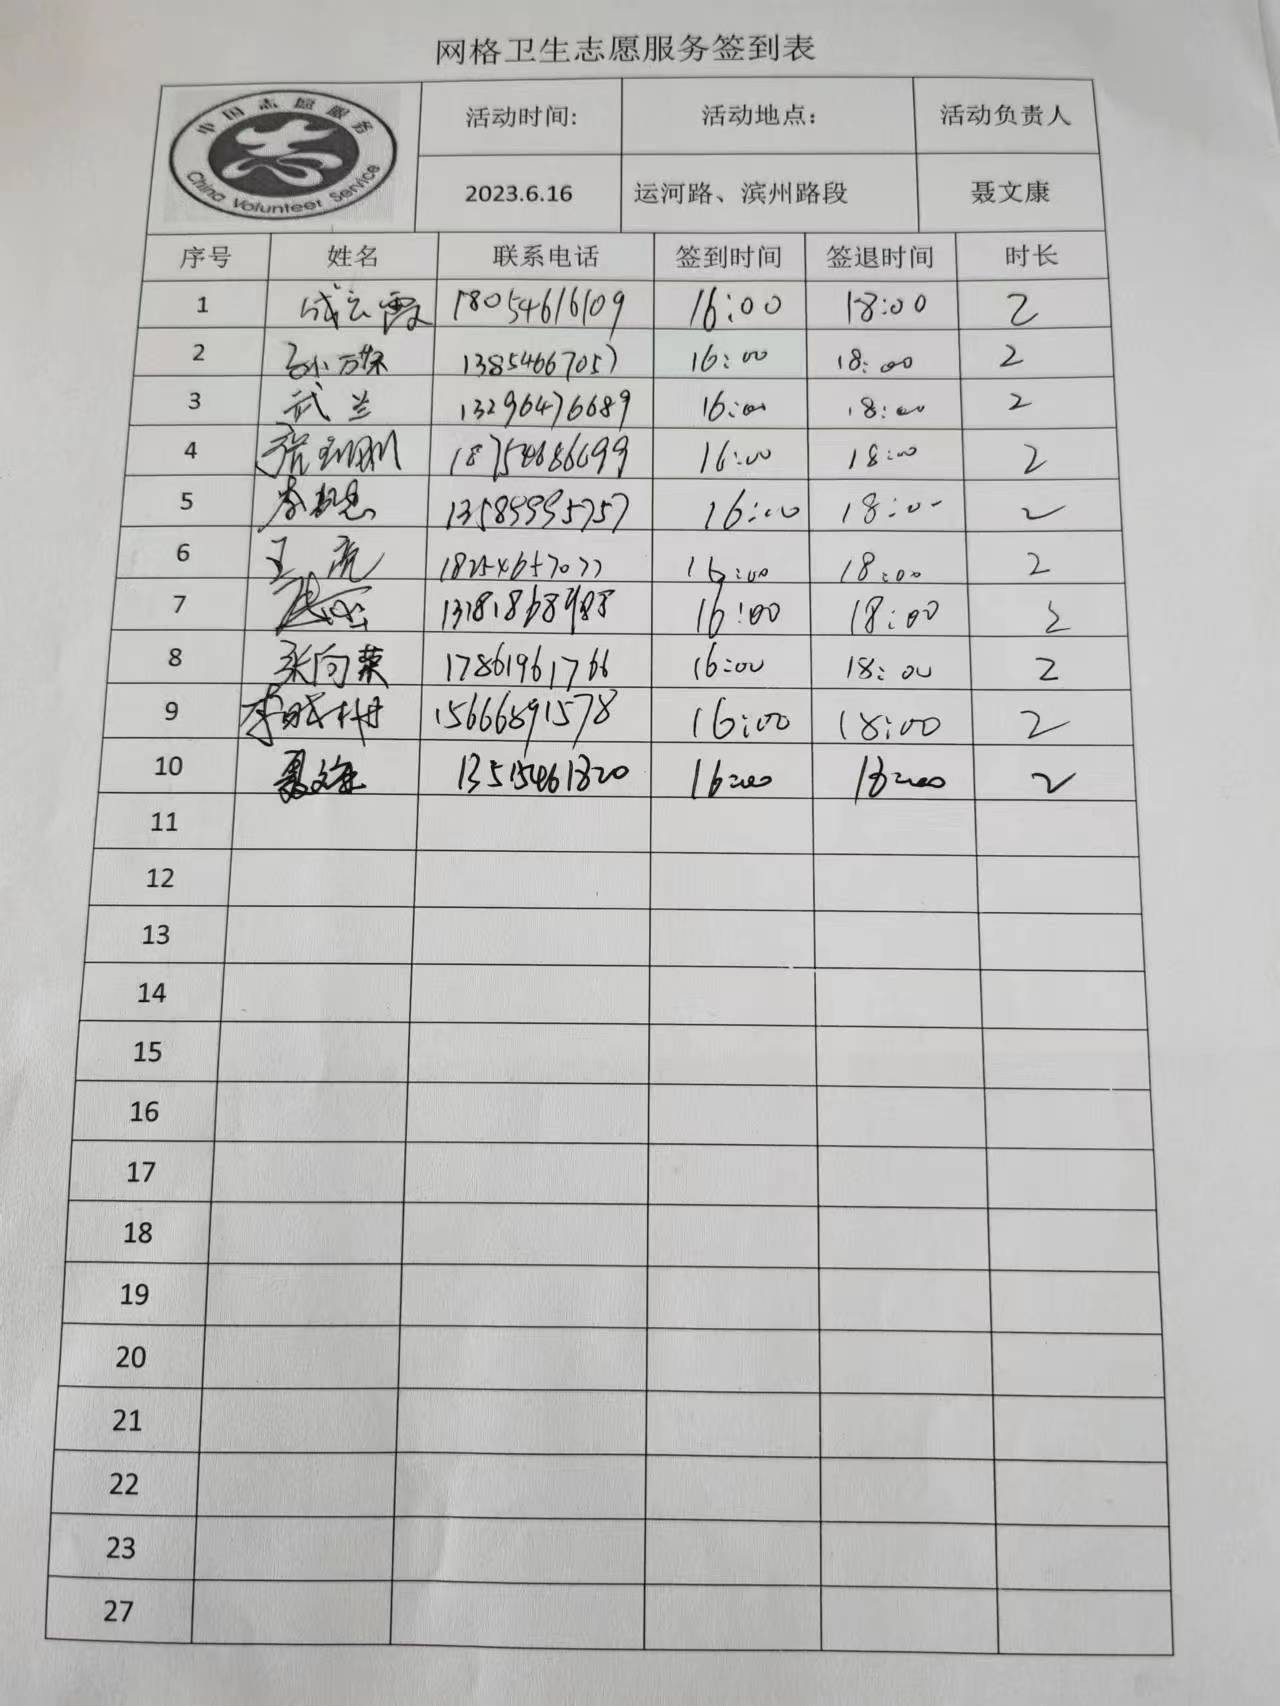 网格卫生志愿服务签到表
中国志愿服务
China Volunteer Service
活动时间: 活动地点： 活动负责人
2023.6.16 运河路、滨州路段 聂文康
序号 姓名 联系电话 签到时间 签退时间 时长
1 成云霞 18054616109 16:00 18:00 2
2 13854667057 16:00 18:00 2
3 武兰 13296476689 16:00 18:00 2
4 18754686699 16:00 18:00 2
5 13589995757 16:00 18:00 2
6 王亮 16:00 18:00 2
7 16:00 18:00 2
8 张向荣 17861961766 16:00 18:00 2
9 15666891578 16:00 18:00 2
10 聂文康 13515461820 16:00 18:00 2
11
12
13
14
15
16
17
18
19
20
21
22
23
27